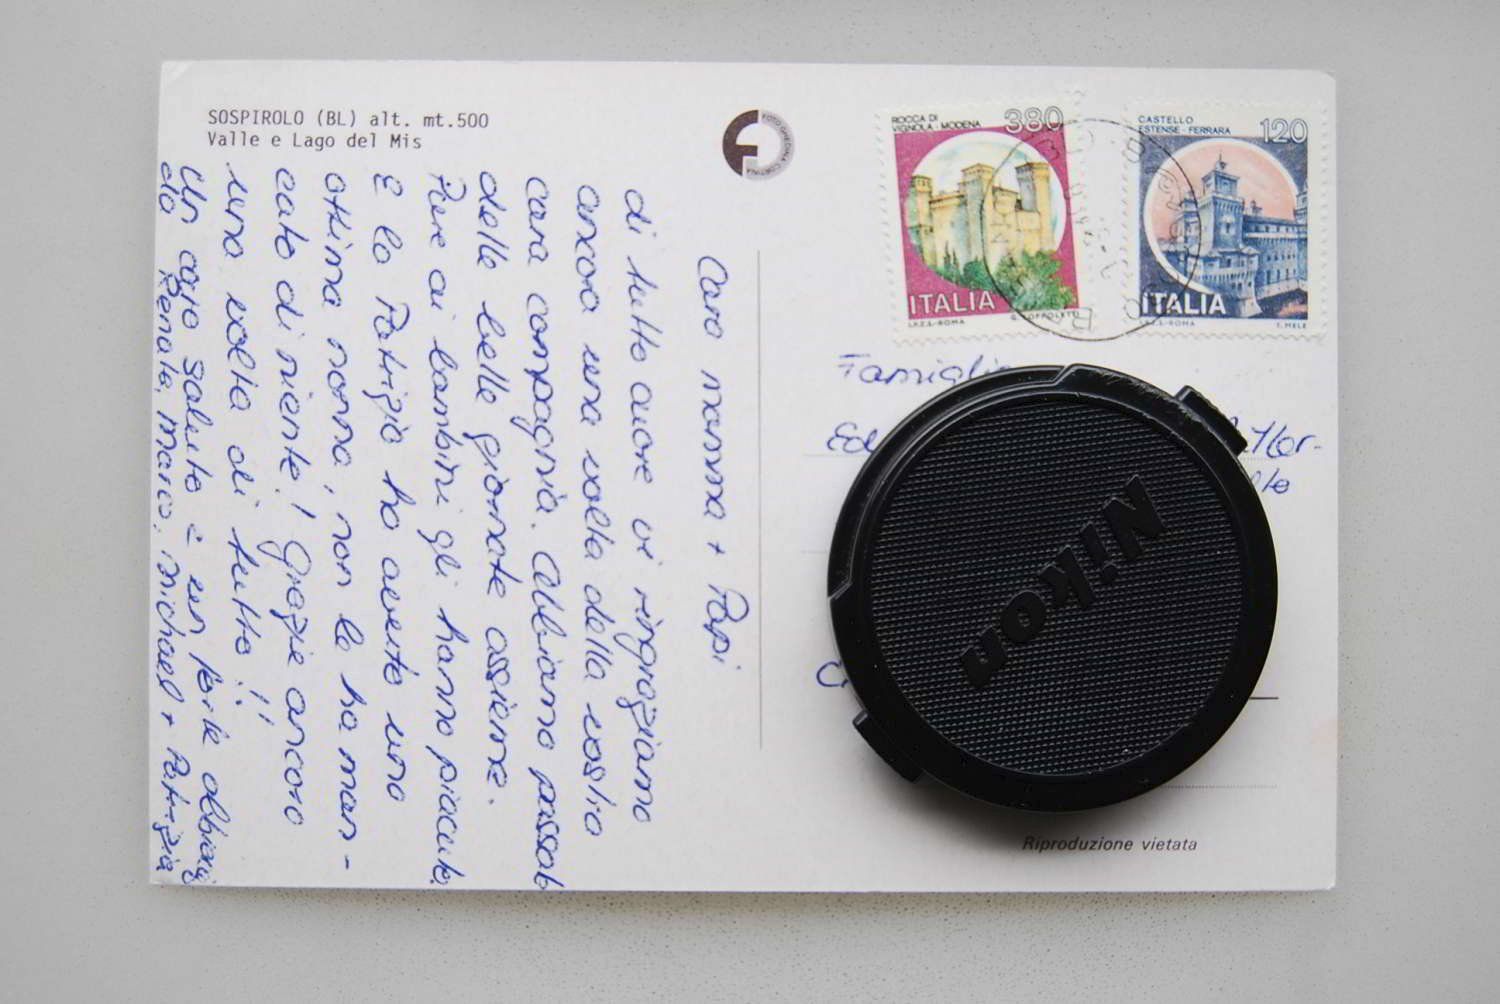 SOSPIROLO (BL) alt. mt.500
Valle e Lago del Mis
Cara mamma + Papi
di tutto cuore vi ringraziamo
ancora una volta della vostra
cara compagnia. Abbiamo passato
delle belle giornate assieme.
Pure ai bambini gli hanno piaciuto
e la Patrizia ha avuto una
ottima nonna, non le ha man-
cato di niente! Grazie ancora
una volta di tutto!!
Un caro saluto e un forte abbraccio
da Renata, Marco, Michael + Patrizia
FOTO GHEDINA CORTINA
ROCCA DI
VIGNOLA - MODENA
380
ITALIA
I.P.Z.S. - ROMA
CASTELLO
ESTENSE - FERRARA
120
ITALIA
I.P.Z.S. - ROMA
T. MELE
Famiglia
Nikon
Riproduzione vietata